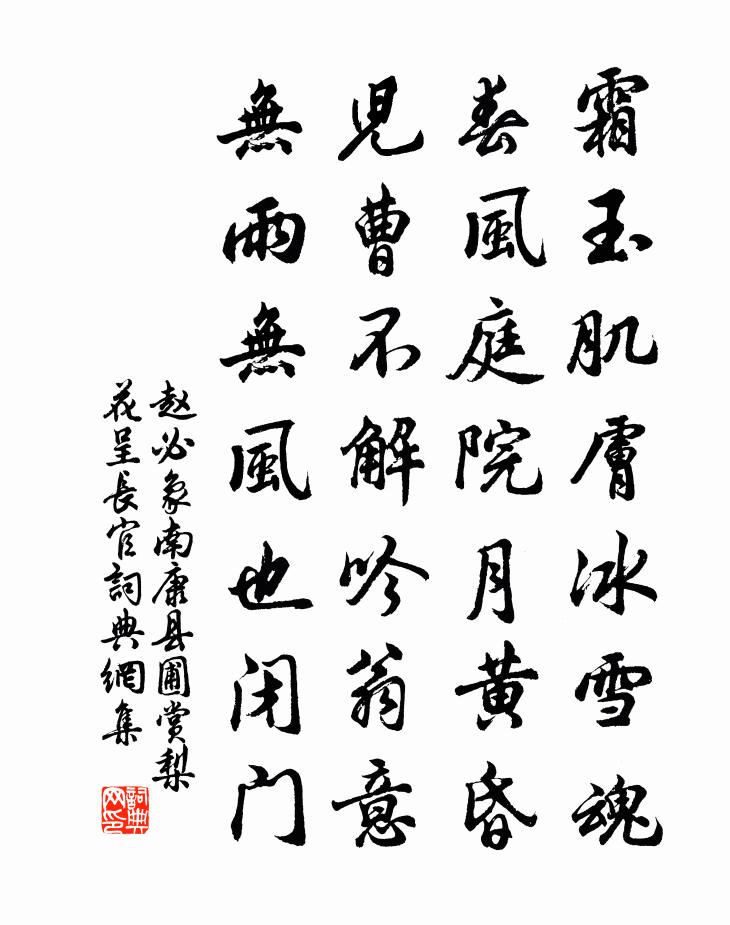 霜玉肌膚冰雪魂
春風庭院月黄昏
児曹不解吟翁意
無雨無風也闭门
赵必象南康县圃赏梨
花呈長官詞典網集
詞典网印